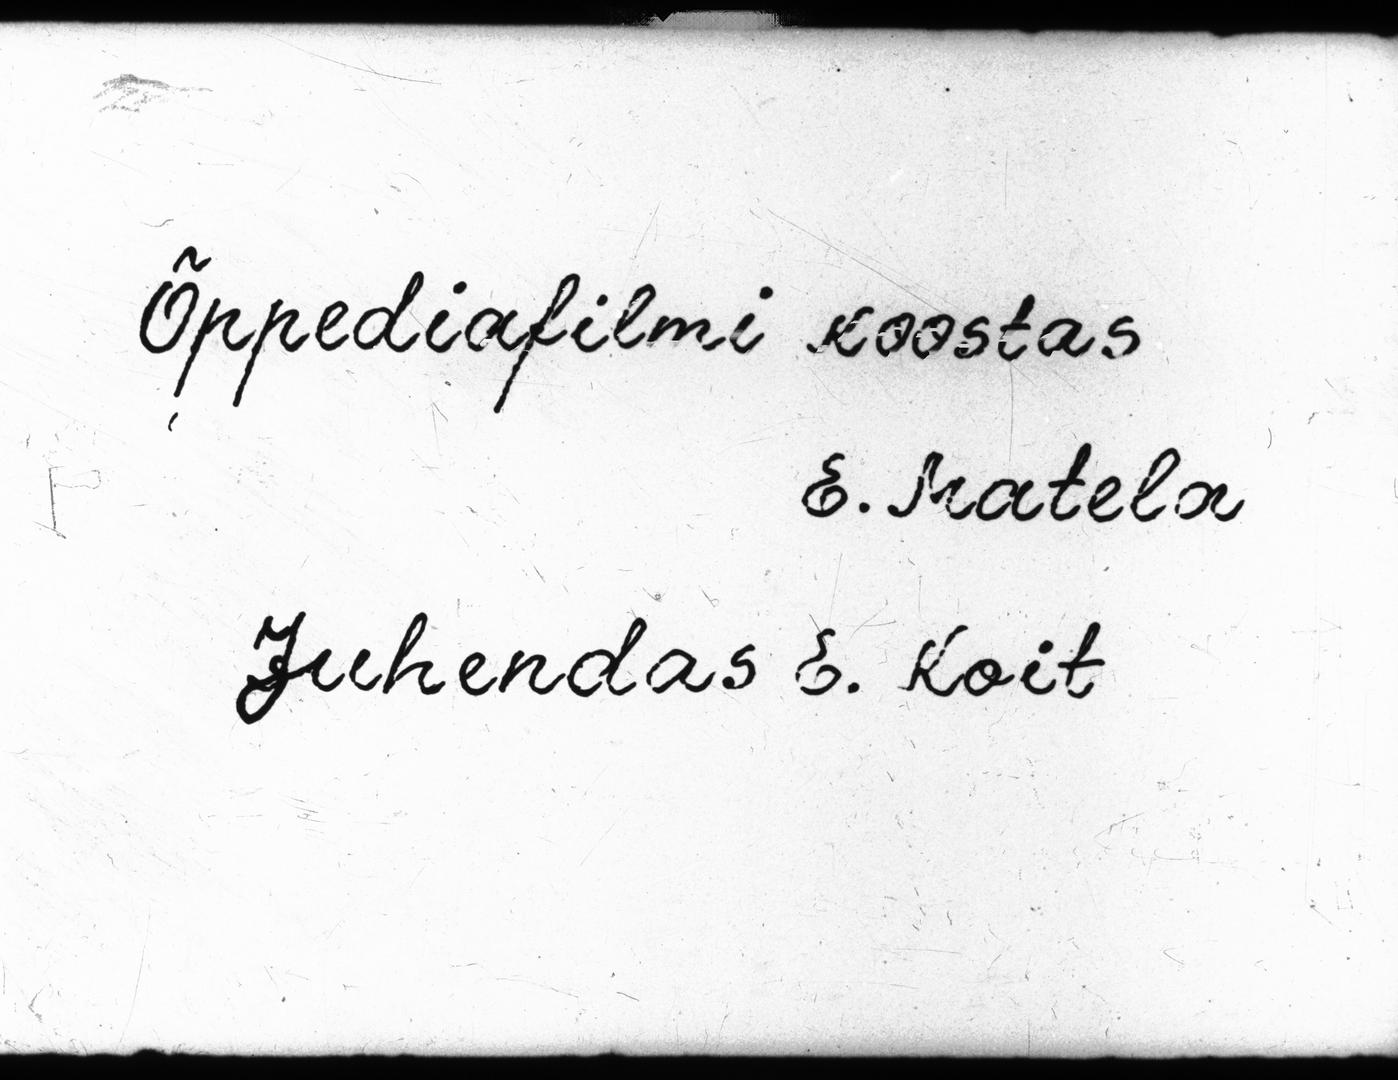 Õppediafilmi koostas
E. Matela
Juhendas E. Koit